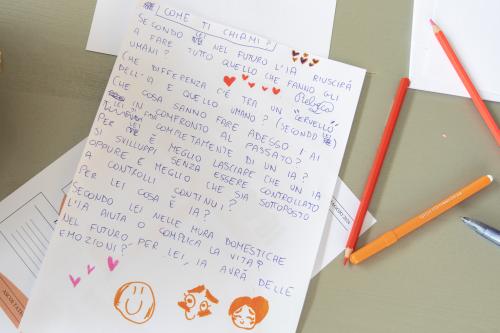 COME TI CHIAMI?
SECONDO LEI NEL FUTURO L'IA RIUSCIRÁ
A FARE TUTTO QUELLO CHE FANNO GLI
UMANI?
CHE DIFFERENZA C'É TRA UN "CERVELLO"
DELL'IA E QUELLO UMANO? (SECONDO
CHE COSA SANNO FARE ADESSO I AI
IN CONFRONTO AL PASSATO?
COMPLETAMENTE DI UN IA?
PER LEI É MEGLIO LASCIARE CHE UN IA
SI SVILUPPI SENZA ESSERE CONTROLLATO
OPPURE É MEGLIO CHE SIA SOTTOPOSTO
A CONTROLLI CONTINUI?
PER LEI COSA É IA?
SECONDO LEI NELLE MURA DOMESTICHE
L'IA AIUTA O COMPLICA LA VITA?
NEL FUTURO PER LEI, IA AVRÁ DELLE
EMOZIONI?